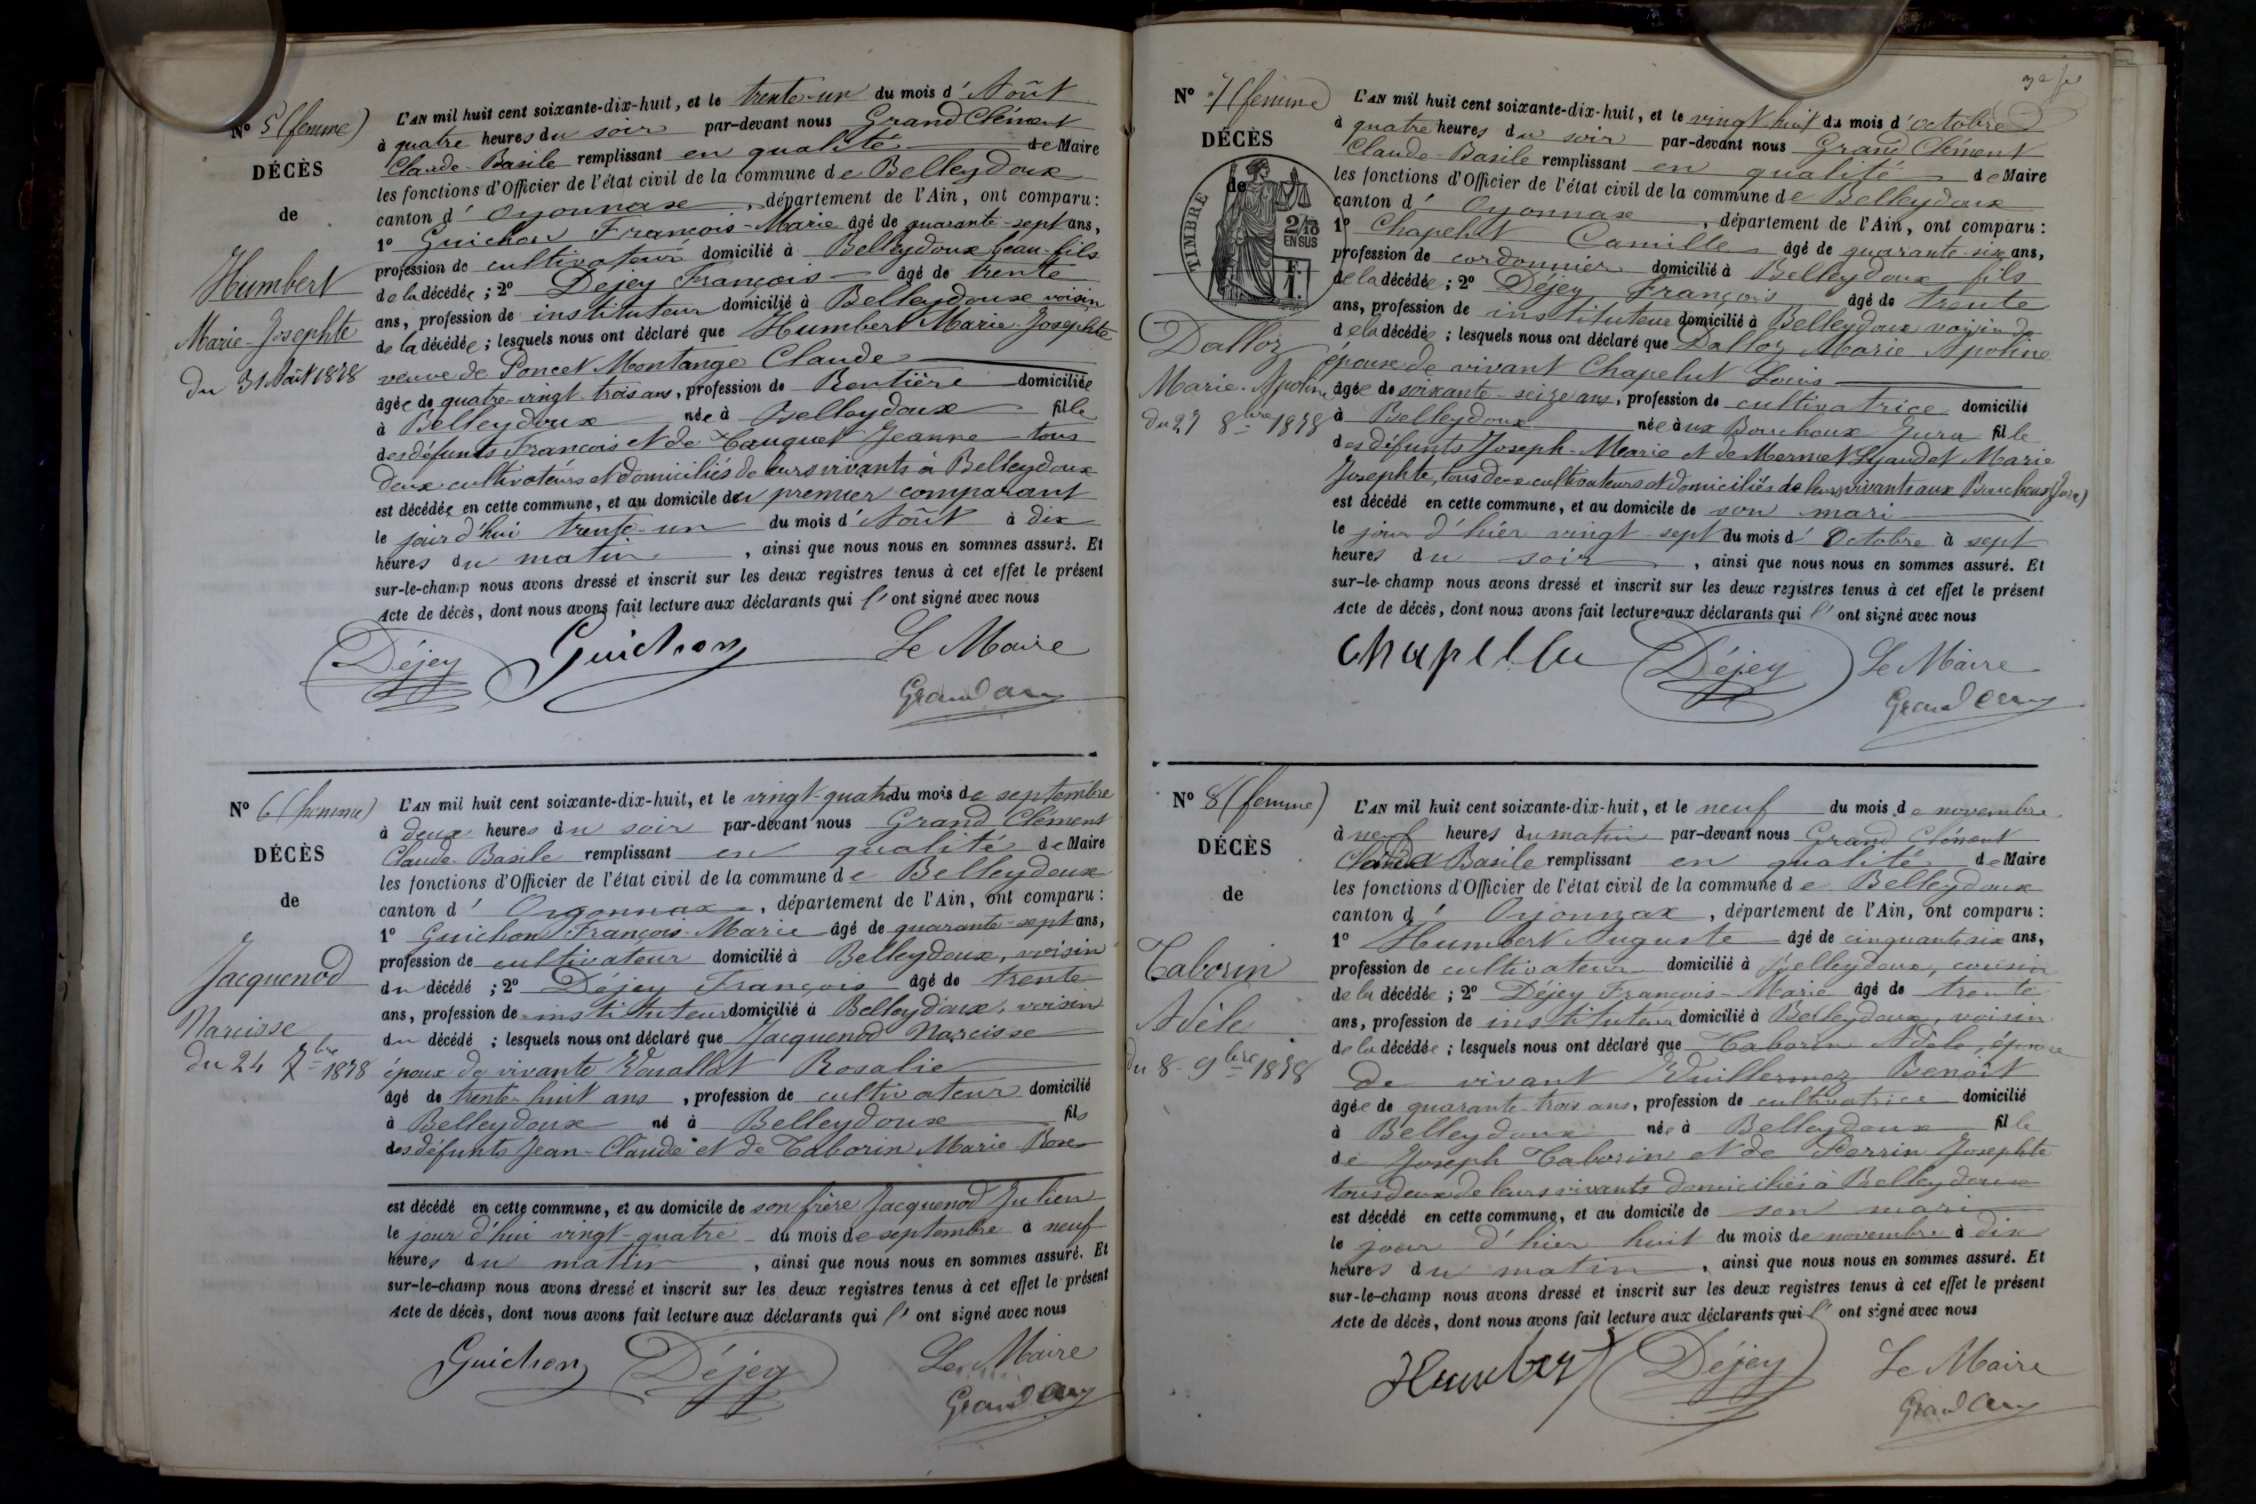 N° 5 (femme)
DÉCÈS
de
Humbert
Marie-Josephte
du 31 Août 1878
L'AN mil huit cent soixante-dix-huit, et le trente-un du mois d'Août
à quatre heures du soir par-devant nous Grand Clément
Claude-Basile remplissant en qualité de Maire
les fonctions d'Officier de l'état civil de la commune de Belleydoux
canton d'Oyonnax, département de l'Ain, ont comparu:
1° Guichon François-Marie âgé de quarante-sept ans,
profession de cultivateur domicilié à Belleydoux beau-fils
de la décédée; 2° Dejey François âgé de trente
ans, profession de instituteur domicilié à Belleydoux voisin
de la décédée; lesquels nous ont déclaré que Humbert Marie-Josephte
veuve de Poncet Montange Claude
âgée de quatre-vingt-trois ans, profession de Rentière domiciliée
à Belleydoux née à Belleydoux fille
des défunts François et de Jeanne tous
deux cultivateurs et domiciliés de leurs vivants à Belleydoux
est décédée en cette commune, et au domicile du premier comparant
le jour d'hui trente-un du mois d'Août à dix
heures du matin, ainsi que nous nous en sommes assuré. Et
sur-le-champ nous avons dressé et inscrit sur les deux registres tenus à cet effet le présent
Acte de décès, dont nous avons fait lecture aux déclarants qui l'ont signé avec nous
Déjey Guichon Le Maire
N° 6 (homme)
DÉCÈS
de
Jacquenod
Narcisse
du 24 7bre 1878
L'AN mil huit cent soixante-dix-huit, et le vingt-quatre du mois de septembre
à deux heures du soir par-devant nous Grand Clément
Claude-Basile remplissant en qualité de Maire
les fonctions d'Officier de l'état civil de la commune de Belleydoux
canton d'Oyonnax, département de l'Ain, ont comparu:
1° Guichon François-Marie âgé de quarante-sept ans,
profession de cultivateur domicilié à Belleydoux, voisin
du décédé; 2° Déjey François âgé de trente
ans, profession de instituteur domicilié à Belleydoux, voisin
du décédé; lesquels nous ont déclaré que Jacquenod Narcisse
époux de vivante Rosalie
âgé de trente-huit ans, profession de cultivateur domicilié
à Belleydoux né à Belleydoux fils
des défunts Jean-Claude et de Taborin Marie Rose
est décédé en cette commune, et au domicile de son frère Jacquenod Julien
le jour d'hui vingt-quatre du mois de septembre à neuf
heures du matin, ainsi que nous nous en sommes assuré. Et
sur-le-champ nous avons dressé et inscrit sur les deux registres tenus à cet effet le présent
Acte de décès, dont nous avons fait lecture aux déclarants qui l'ont signé avec nous
Guichon Déjey Le Maire
N° 7 (femme)
DÉCÈS
de
TIMBRE
2/10
EN SUS
F.
1.
Dalloz
Marie-Apoline
du 27 8bre 1878
L'AN mil huit cent soixante-dix-huit, et le vingt huit du mois d'octobre
à quatre heures du soir par-devant nous Grand Clément
Claude-Basile remplissant en qualité de Maire
les fonctions d'Officier de l'état civil de la commune de Belleydoux
canton d'Oyonnax, département de l'Ain, ont comparu:
1° Chapelut Camille âgé de quarante-six ans,
profession de cordonnier domicilié à Belleydoux fils
de la décédée; 2° Déjey François âgé de trente
ans, profession de instituteur domicilié à Belleydoux voisin de
de la décédée; lesquels nous ont déclaré que Dalloz Marie Apoline
épouse de vivant Chapelut Louis
âgée de soixante-seize ans, profession de cultivatrice domicilié
à Belleydoux née aux Bouchoux Jura fille
des défunts Joseph-Marie et de Mermet Lyaudet Marie
Josephte, tous deux cultivateurs et domiciliés de leurs vivants aux Bouchoux (Jura)
est décédé en cette commune, et au domicile de son mari
le jour d'hier vingt-sept du mois d'Octobre à sept
heures du soir, ainsi que nous nous en sommes assuré. Et
sur-le-champ nous avons dressé et inscrit sur les deux registres tenus à cet effet le présent
Acte de décès, dont nous avons fait lecture aux déclarants qui l'ont signé avec nous
Déjey Le Maire
N° 8 (femme)
DÉCÈS
de
Taborin
Adèle
du 8 9bre 1878
L'AN mil huit cent soixante-dix-huit, et le neuf du mois de novembre
à neuf heures du matin par-devant nous Grand Clément
Claude Basile remplissant en qualité de Maire
les fonctions d'Officier de l'état civil de la commune de Belleydoux
canton d'Oyonnax, département de l'Ain, ont comparu:
1° Humbert Auguste âgé de cinquante six ans,
profession de cultivateur domicilié à Belleydoux, cousin
de la décédée; 2° Déjey François-Marie âgé de trente
ans, profession de instituteur domicilié à Belleydoux, voisin
de la décédée; lesquels nous ont déclaré que Taborin Adèle, épouse
de vivant Vuillermoz Benoît
âgée de quarante-trois ans, profession de cultivatrice domicilié
à Belleydoux née à Belleydoux fille
de Joseph Taborin et de Perrin Josephte
tous deux de leurs vivants domiciliés à Belleydoux
est décédé en cette commune, et au domicile de son mari
le jour d'hier huit du mois de novembre à dix
heures du matin, ainsi que nous nous en sommes assuré. Et
sur-le-champ nous avons dressé et inscrit sur les deux registres tenus à cet effet le présent
Acte de décès, dont nous avons fait lecture aux déclarants qui l'ont signé avec nous
Humbert Déjey Le Maire